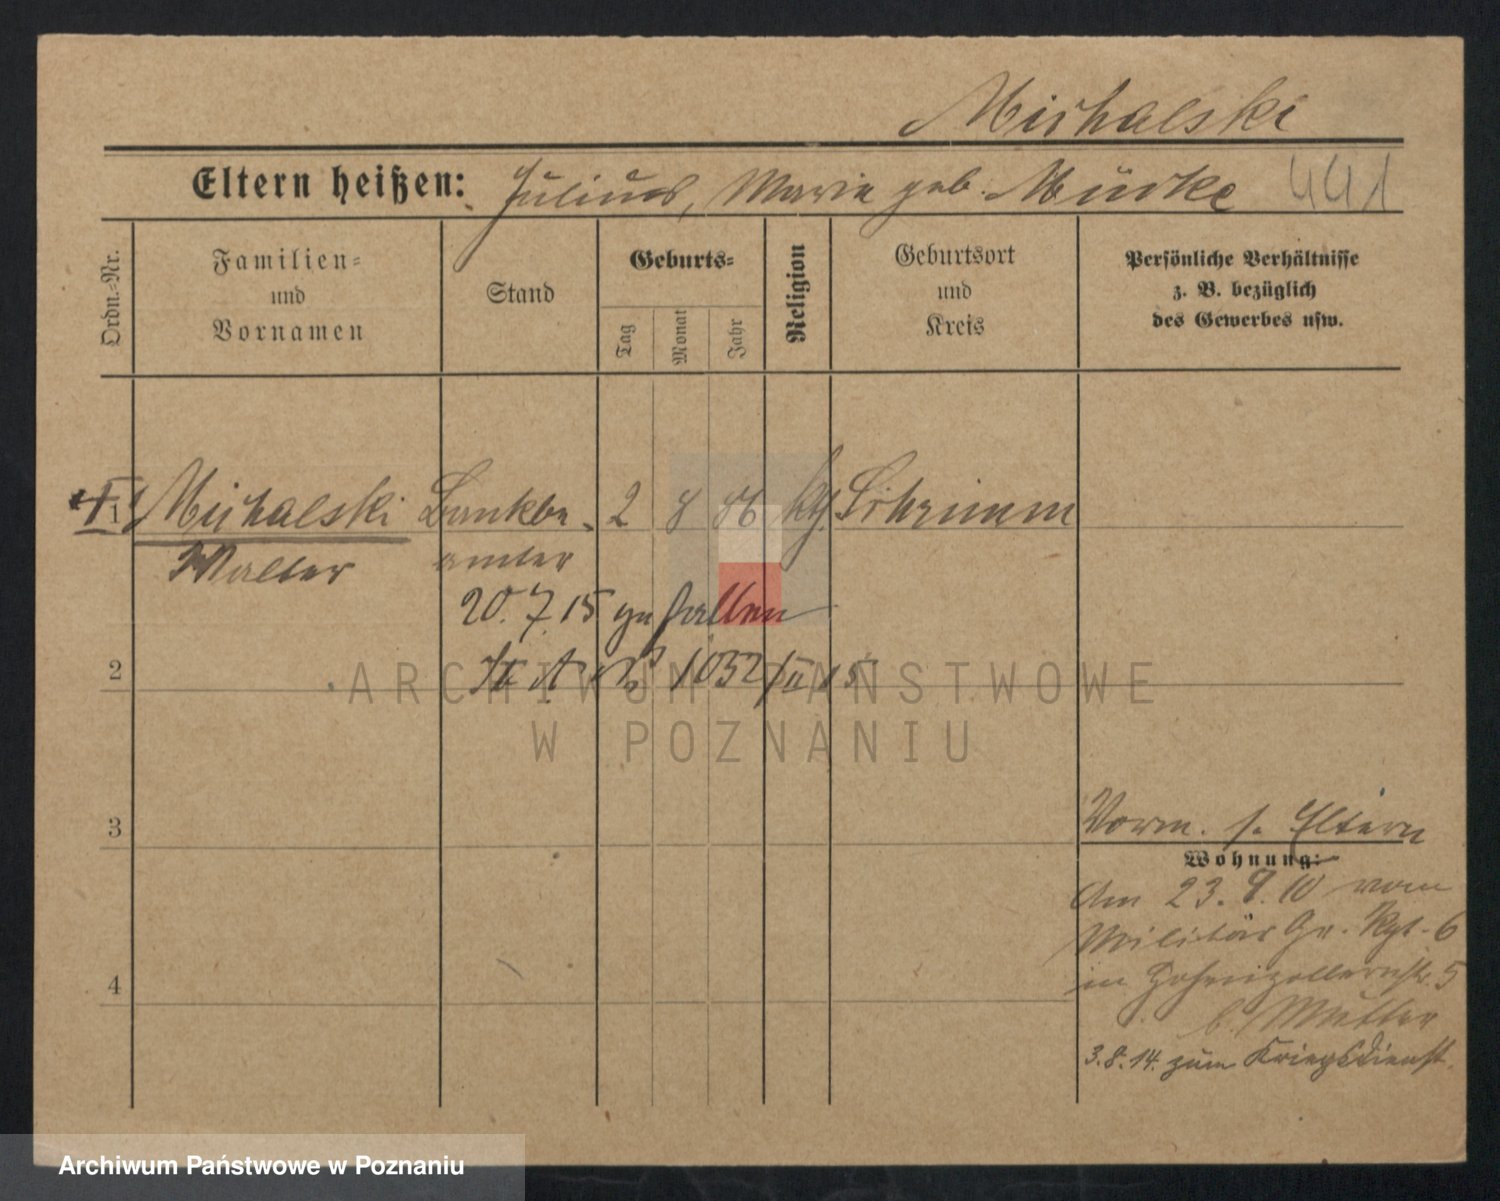 Michalski
Eltern heißen: Julius, Marie geb. Mürke 441
Ordn.-Nr.
Familien-
und
Vornamen
Stand
Geburts-
Tag
Monat
Jahr
Religion
Geburtsort
und
Kreis
Persönliche Verhältnisse
z. B. bezüglich
des Gewerbes usw.
1 Michalski Bankbe- 2 8 86 kth Schrimm
Walter amter
20.7.15 gefallen
St. A. No 1052/II 15
2
3
4
Vorm. s. Eltern
Wohnung:
Am 23.9.10 vom
Militär Gr. Rgt. 6
in Hohenzollernstr. 5
b. Mutter
3.8.14. zum Kriegsdienst.
ARCHIWUM PAŃSTWOWE
W POZNANIU
Archiwum Państwowe w Poznaniu